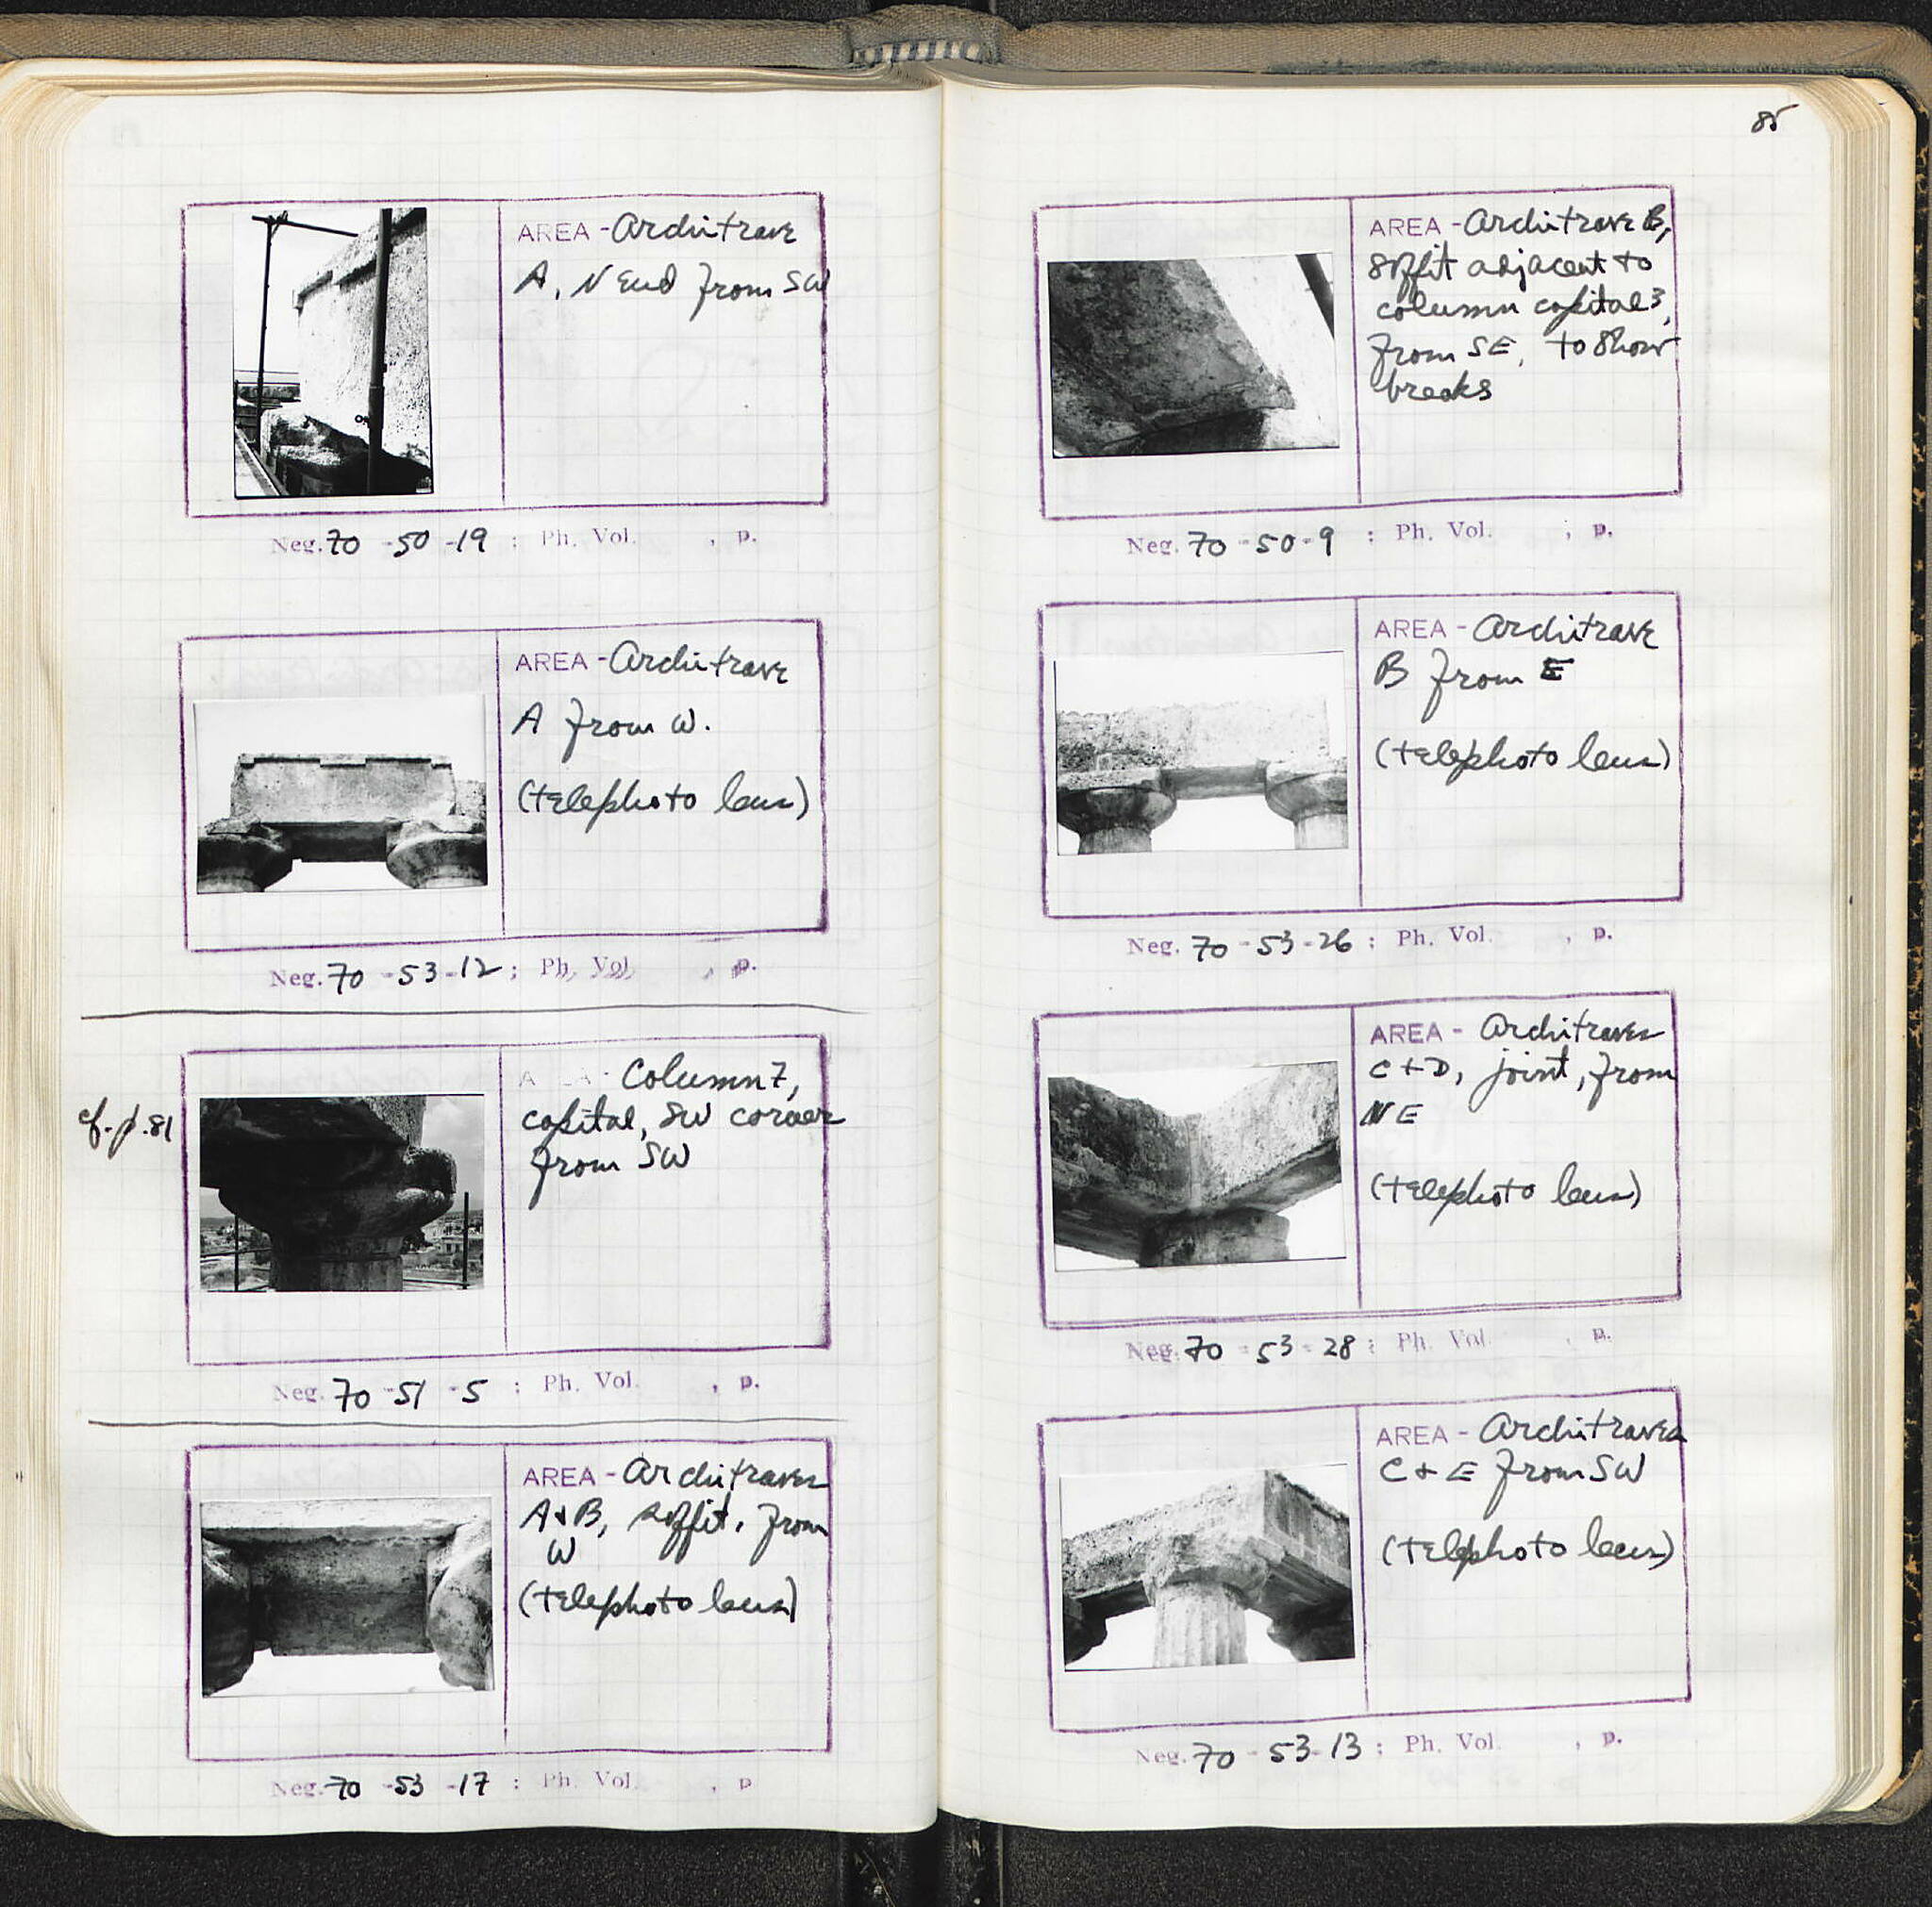 AREA - Architrave
A, N End from SW
Neg. 70 - 50 - 19 ; Ph. Vol. , p.
AREA - Architrave
A from W.
(telephoto lens)
Neg. 70 - 53 - 12 ; Ph. Vol. , p.
cf. p. 81
Column 7,
capital, SW corner
from SW
Neg. 70 - 51 - 5 ; Ph. Vol. , p.
AREA - Architraves
A + B, soffit, from
W
(telephoto lens)
Neg. 70 - 53 - 17 ; Ph. Vol. , p
85
AREA - Architrave B,
soffit adjacent to
column capital 3,
from SE, to show
breaks
Neg. 70 - 50 - 9 ; Ph. Vol. , p.
AREA - Architrave
B from E
(telephoto lens)
Neg. 70 - 53 - 26 ; Ph. Vol. , p.
AREA - Architraves
C + D, joint, from
NE
(telephoto lens)
Neg. 70 - 53 - 28 ; Ph. Vol. , p.
AREA - Architraves
C + E from SW
(telephoto lens)
Neg. 70 - 53 - 13 ; Ph. Vol. , p.